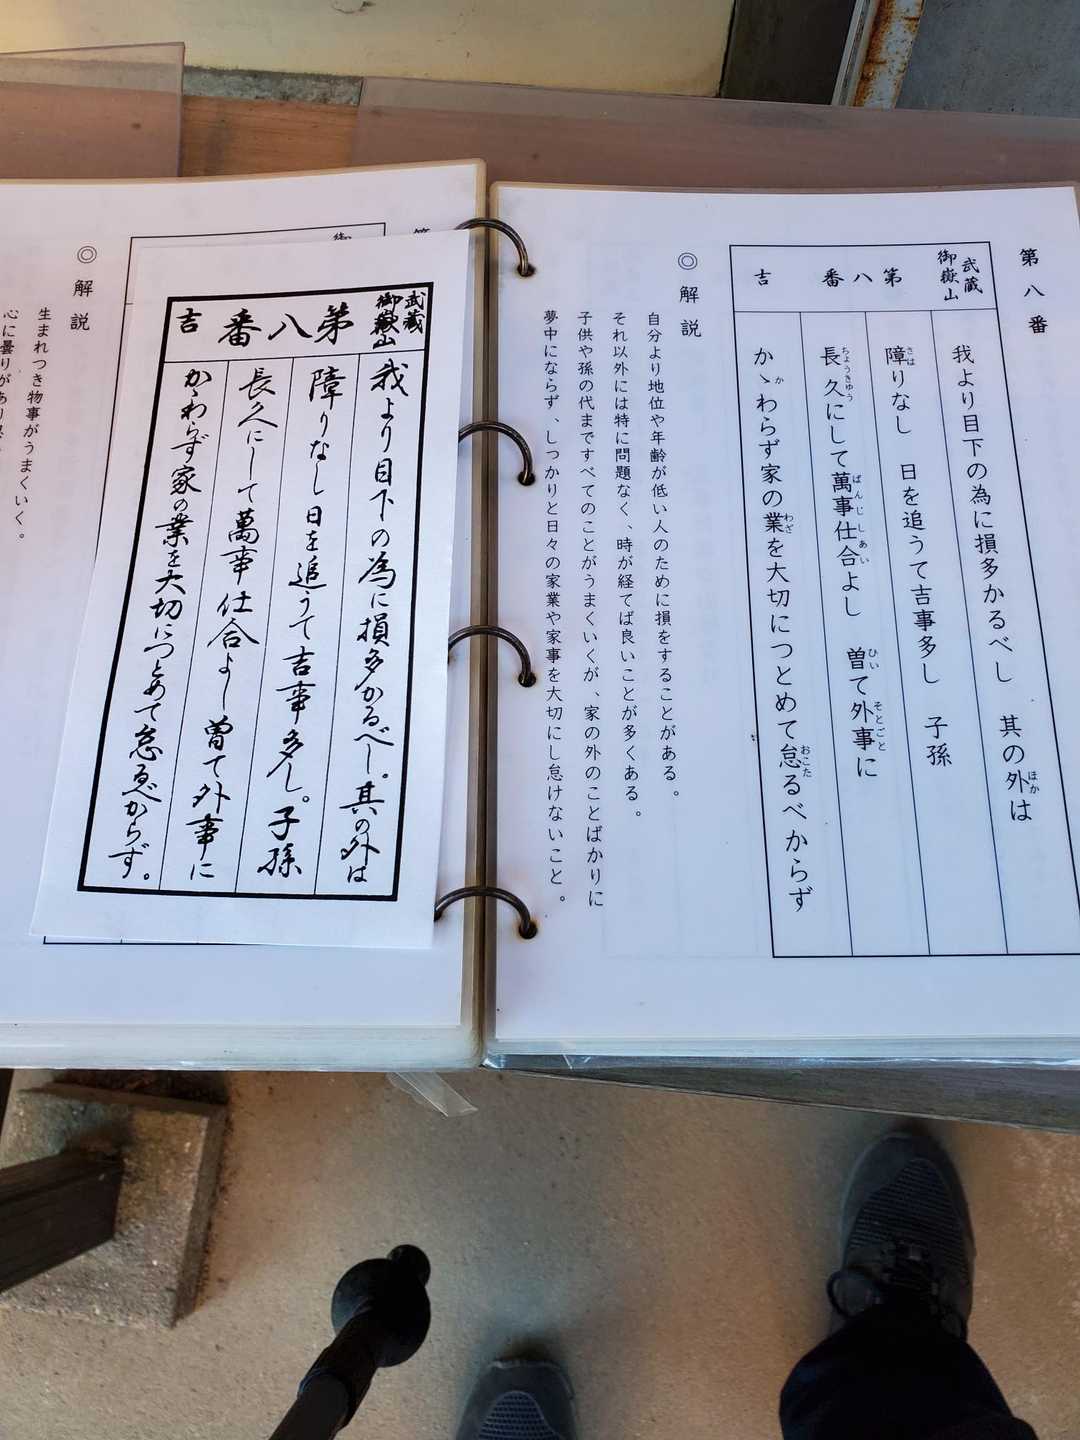 第八番
武蔵
御嶽山
第八番
吉
我より目下の為に損多かるべし 其の外は
ほか
障りなし 日を追うて吉事多し 子孫
さは
長久にして萬事仕合よし 曽て外事に
ちょうきゅう
ばんじしあい
ひい
そとごと
かゝわらず家の業を大切につとめて怠るべからず
か
わざ
おこた
◎解説
自分より地位や年齢が低い人のために損をすることがある。
それ以外には特に問題なく、時が経てば良いことが多くある。
子供や孫の代まですべてのことがうまくいくが、家の外のことばかりに
夢中にならず、しっかりと日々の家業や家事を大切にし怠けないこと。
武蔵
御嶽山
第八番
吉
我より目下の為に損多かるべし。其の外は
障りなし日を追うて吉事多し。子孫
長久にして萬事仕合よし曽て外事に
かゝわらず家の業を大切につとめて怠るべからず。
◎解説
生まれつき物事がうまくいく。
心に曇りがあり